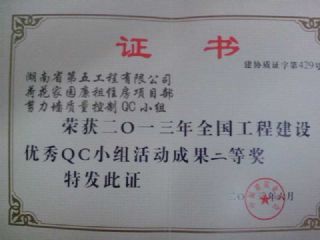 证书
建协质证字第429号
湖南省第五工程有限公司
荷花家园廉租住房项目部
剪力墙质量控制QC小组
荣获二〇一三年全国工程建设
优秀QC小组活动成果二等奖
特发此证